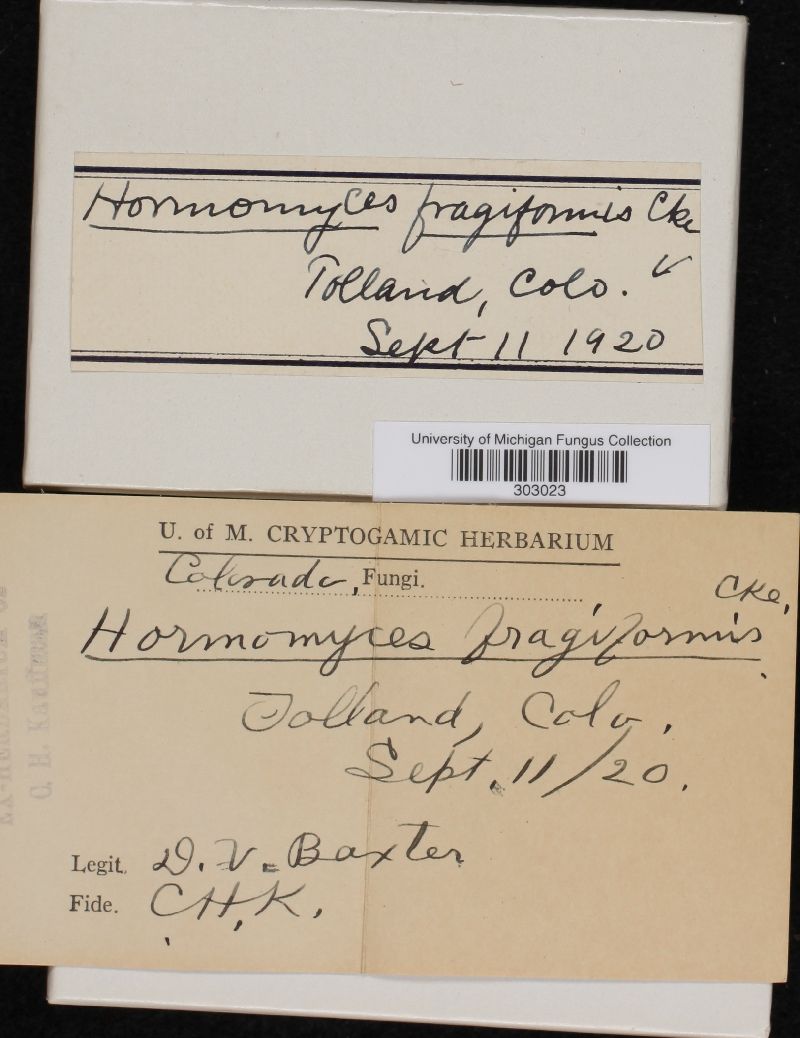 Hormomyces fragiformis Cke
Tolland, Colo.
Sept 11 1920
University of Michigan Fungus Collection
303023
U. of M. CRYPTOGAMIC HERBARIUM
Colorado, Fungi.
Cke,
Hormomyces fragiformis.
Tolland, Colo,.
Sept. 11/20.
Legit. D. V. Baxter
Fide. C.H.K.
EX-HERBARIUM OF
C. H. Kauffman